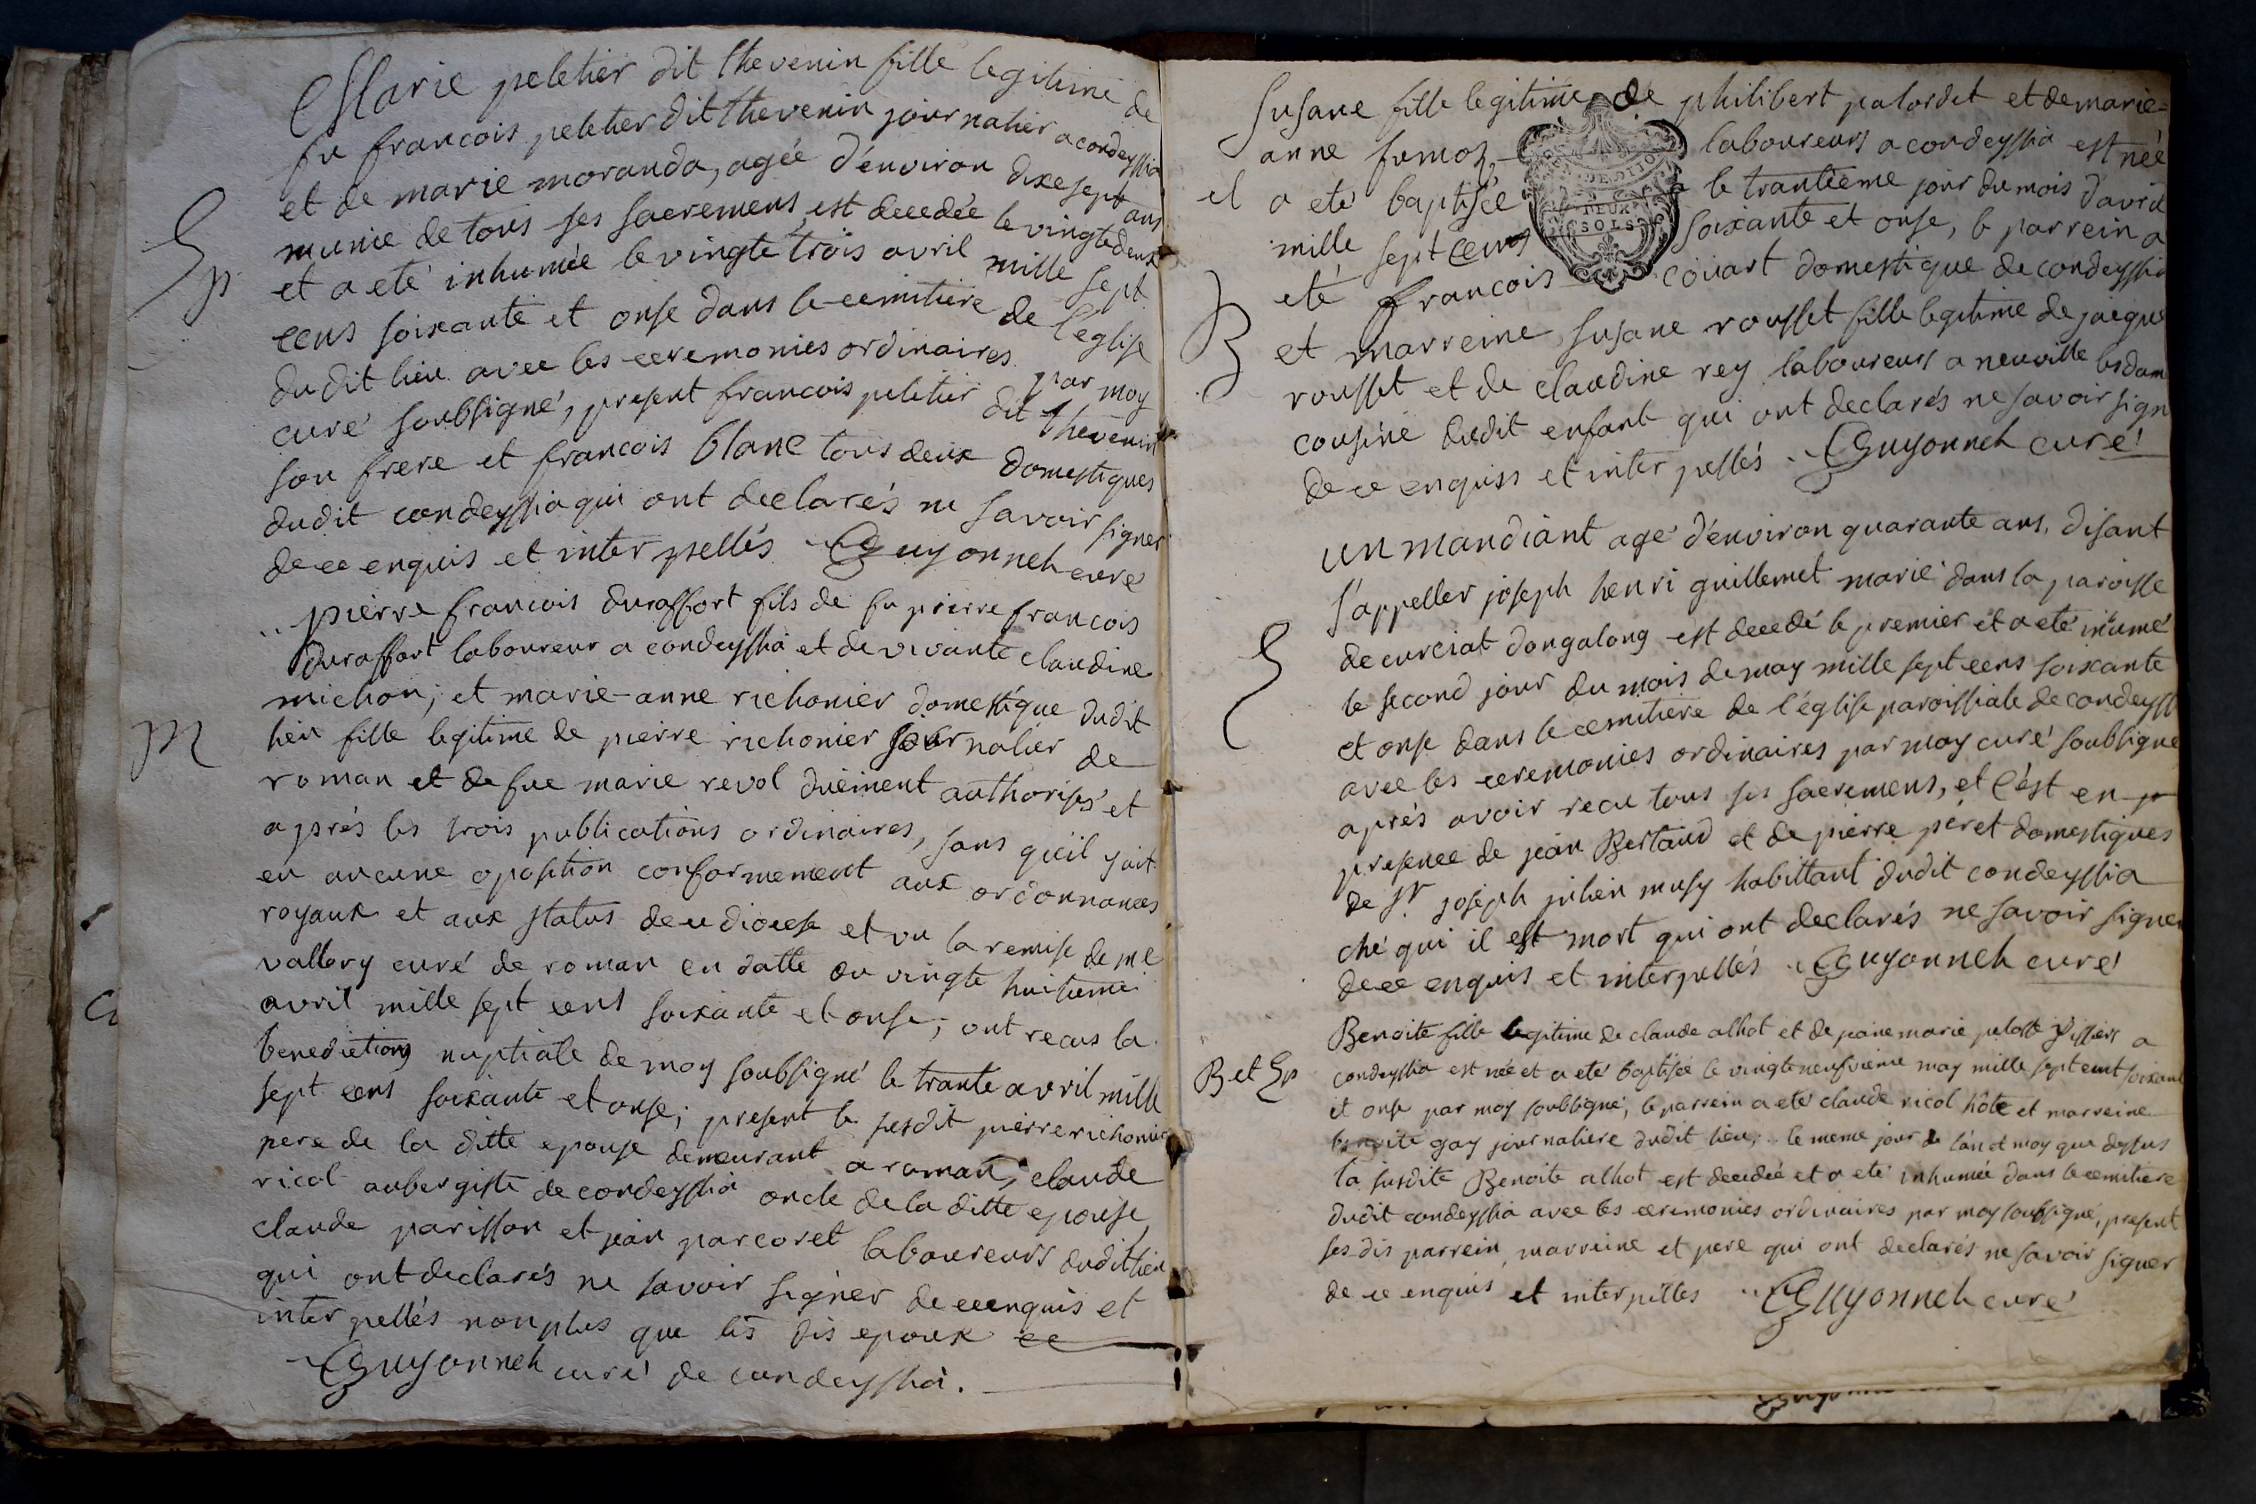 Marie peletier dit thevenin fille legitime de
fu francois peletier dit thevenin journalier a condeyssia
et de marie moranda, agée d'environ dixesept ans
Sp
munie de tous ses sacremens, est decedée le vingtedeux
et a eté inhumée le vingte trois avril mille sept
cens soixante et onse dans le cemitiere de l'eglise
dudit lieu avec les ceremonies ordinaires par moy
curé soubsigné, present francois peletier dit thevenin
son frere et francois blanc tous deux domestiques
dudit condeyssia qui ont declarés ne savoir signer
de ce enquis et interpellés Guyonneh curé
pierre francois duraffort fils de fu pierre francois
duraffort laboureur a condeyssia et de vivante claudine
michon; et marie-anne richonier domestique dudit
M
lieu fille legitime de pierre richonier journalier de
roman et de fue marie revol duëment authorisés et
aprés les trois publications ordinaires, sans qu'il y ait
eu aucune oposition conformement aux ordonnances
royaux et aux status de ce diocese et vu la remise de me
vallory curé de roman en datte du vingte huitieme
avril mille sept cens soixante et onse; ont recus la
benedictions nuptiale de moy soubsigné le trante avril mille
sept cens soixante et onse; present le susdit pierre richonier
pere de la ditte epouse demeurant a roman, claude
ricol aubergiste de condeyssia oncle de la ditte epouse,
claude parisson et jean parcoret laboureurs dudit lieu
qui ont declarés ne savoir signer de ce enquis et
interpellés non plus que les dis epoux
Guyonneh curé de condeyssia.
Susane fille legitime de philibert palordet et de marie-
anne fumoz laboureurs a condeyssia est née
et a eté baptisée le trantieme jour du mois d'avril
DEUX
SOLS
mille sept cens soixante et onse, le parrein a
eté francois couart domestique de condeyssia
B
et marreine susane rousset fille legitime de jacque
rousset et de claudine rey laboureurs a neuville les dam
cousine dudit enfant qui ont declarés ne savoir sign
de ce enquiss et interpellés Guyonneh curé
un mandiant agé d'environ quarante ans, disant
s'appeller joseph henri guillemet marié dans la paroisse
de curciat dongalong est decedé le premier et a eté inhumé
S
le second jour du mois de may mille sept cens soixante
et onse dans le cemitiere de l'église paroissiale de condeyss
avec les ceremonies ordinaires par moy curé soubsigné
aprés avoir recu tous ses sacremens, et c'est en
presence de jean Bertaud et de pierre peret domestiques
de Sr joseph julien musy habittant dudit condeyssia
ché qui il est mort qui ont declarés ne savoir signer
de ce enquis et interpellés Guyonneh curé
Benoite fille legitime de claude alhot et de jeane marie pelosse a
B et Sp
condeyssia est née et a eté baptisée le vingteneufvieme may mille sept cent soixant
et onse par moy soubsigné, le parrein a eté claude ricol hôte et marreine
benoite gay journaliere dudit lieu; le meme jour de l'an et moy que dessus
la susdite Benoite alhot est decedée et a eté inhumée dans le cemitiere
dudit condeyssia avec les ceremonies ordinaires par moy soubsigné, present
ses dis parrein, marreine et pere qui ont declarés ne savoir signer
de ce enquis et interpelles Guyonneh curé